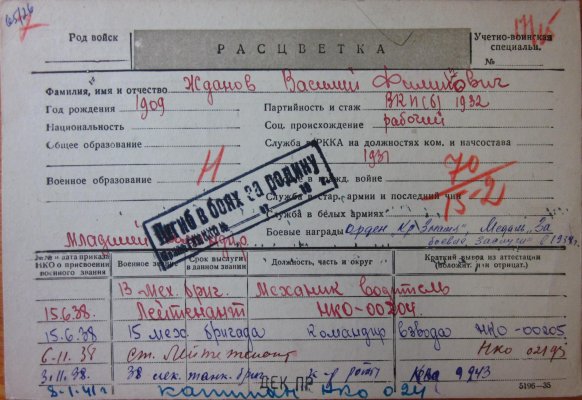 65/26
Род войск
РАСЦВЕТКА
Учетно-воинская специальн.
№
Фамилия, имя и отчество Жданов Василий Филиппович
Год рождения 1909 Партийность и стаж ВКП(б) 1932
Национальность Соц. происхождение рабочий
Общее образование Служба в РККА на должностях ком. и начсостава
1931
Военное образование Н
войне 70
15-2
Служба в стар. армии и последний чин
Служба в белых армиях
Погиб в боях за родину
Боевые награды Орден Кр. Знамя, Медаль За
боевые заслуги 1938 г.
Младший
№ и дата приказа НКО о присвоении военного звания
Военное звание
Срок выслуги в данном звании
Должность, часть и округ
Краткий вывод из аттестации (положит. или отрицат.)
13 Мех. бриг. Механик водитель
15.6.38. Лейтенант НКО-00204
15.6.38 15 мех. бригада командир взвода НКО-00205
6-11.38 ст. Лейтенант НКО
3.11.38. 38 танк. бриг. к-р роты
ДЕК ПР
8-1.41 г. капитан НКО 024
5196—35